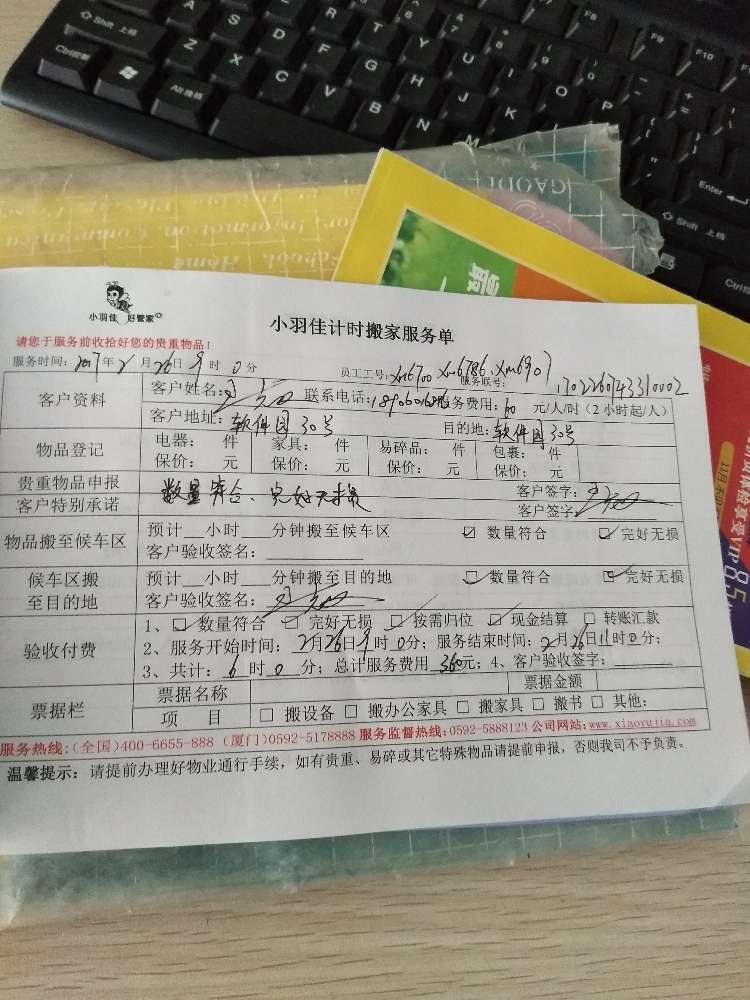 Shift 上档
Ctrl控制
Alt 换档
A S D F G H J K L
Z X C V B N M
E R T Y U I O P
F9
F10
Enter
Shift 上档
GAODI
School, Home
小羽佳 好管家
小羽佳计时搬家服务单
请您于服务前收拾好您的贵重物品!
服务时间: 2017年2月26日9时0分 员工工号: xm6700 xm6786、xm6907 服务联号: 1702260743310002
客户资料 客户姓名: 联系电话: 服务费用: 60 元/人/时(2小时起/人)
客户地址: 软件园30号 目的地: 软件园30号
物品登记 电器: 件 家具: 件 易碎品: 件 包裹: 件
保价: 元 保价: 元 保价: 元 保价: 元
贵重物品申报 客户签字:
数量符合、完好无损
客户特别承诺 客户签字:
物品搬至候车区 预计__小时___分钟搬至候车区 ☑ 数量符合 ☑ 完好无损
客户验收签名:
候车区搬至目的地 预计__小时___分钟搬至目的地 ☑ 数量符合 ☑ 完好无损
客户验收签名:
验收付费 1、☑ 数量符合 ☑ 完好无损 ☑ 按需归位 ☑ 现金结算 □ 转账汇款
2、服务开始时间: 2月26日9时0分; 服务结束时间: 2月26日11时0分;
3、共计: 6时0分; 总计服务费用 360元; 4、客户验收签字:
票据栏 票据名称 票据金额
项 目 □ 搬设备 □ 搬办公家具 □ 搬家具 □ 搬书 □ 其他:
服务热线:(全国)400-6655-888 (厦门)0592-5178888 服务监督热线:0592-5888123 公司网站:www.xiaoyujia.com
温馨提示: 请提前办理好物业通行手续, 如有贵重、易碎或其它特殊物品请提前申报, 否则我司不予负责。
享受VIP
8.5